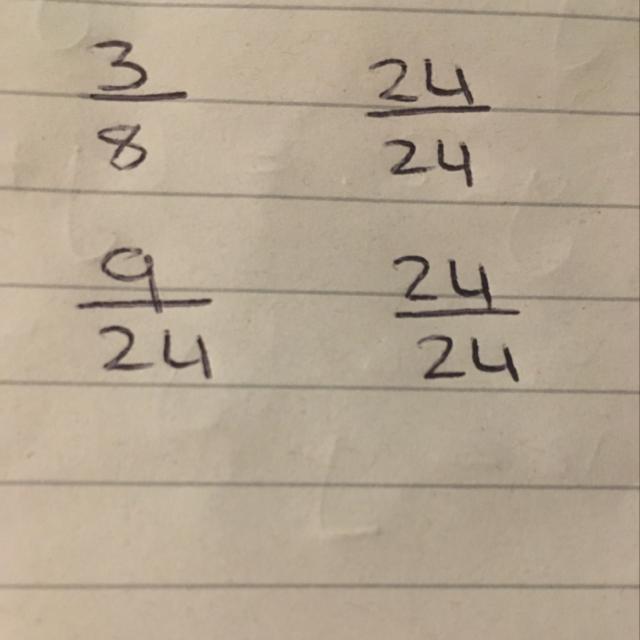 3/8 24/24
9/24 24/24